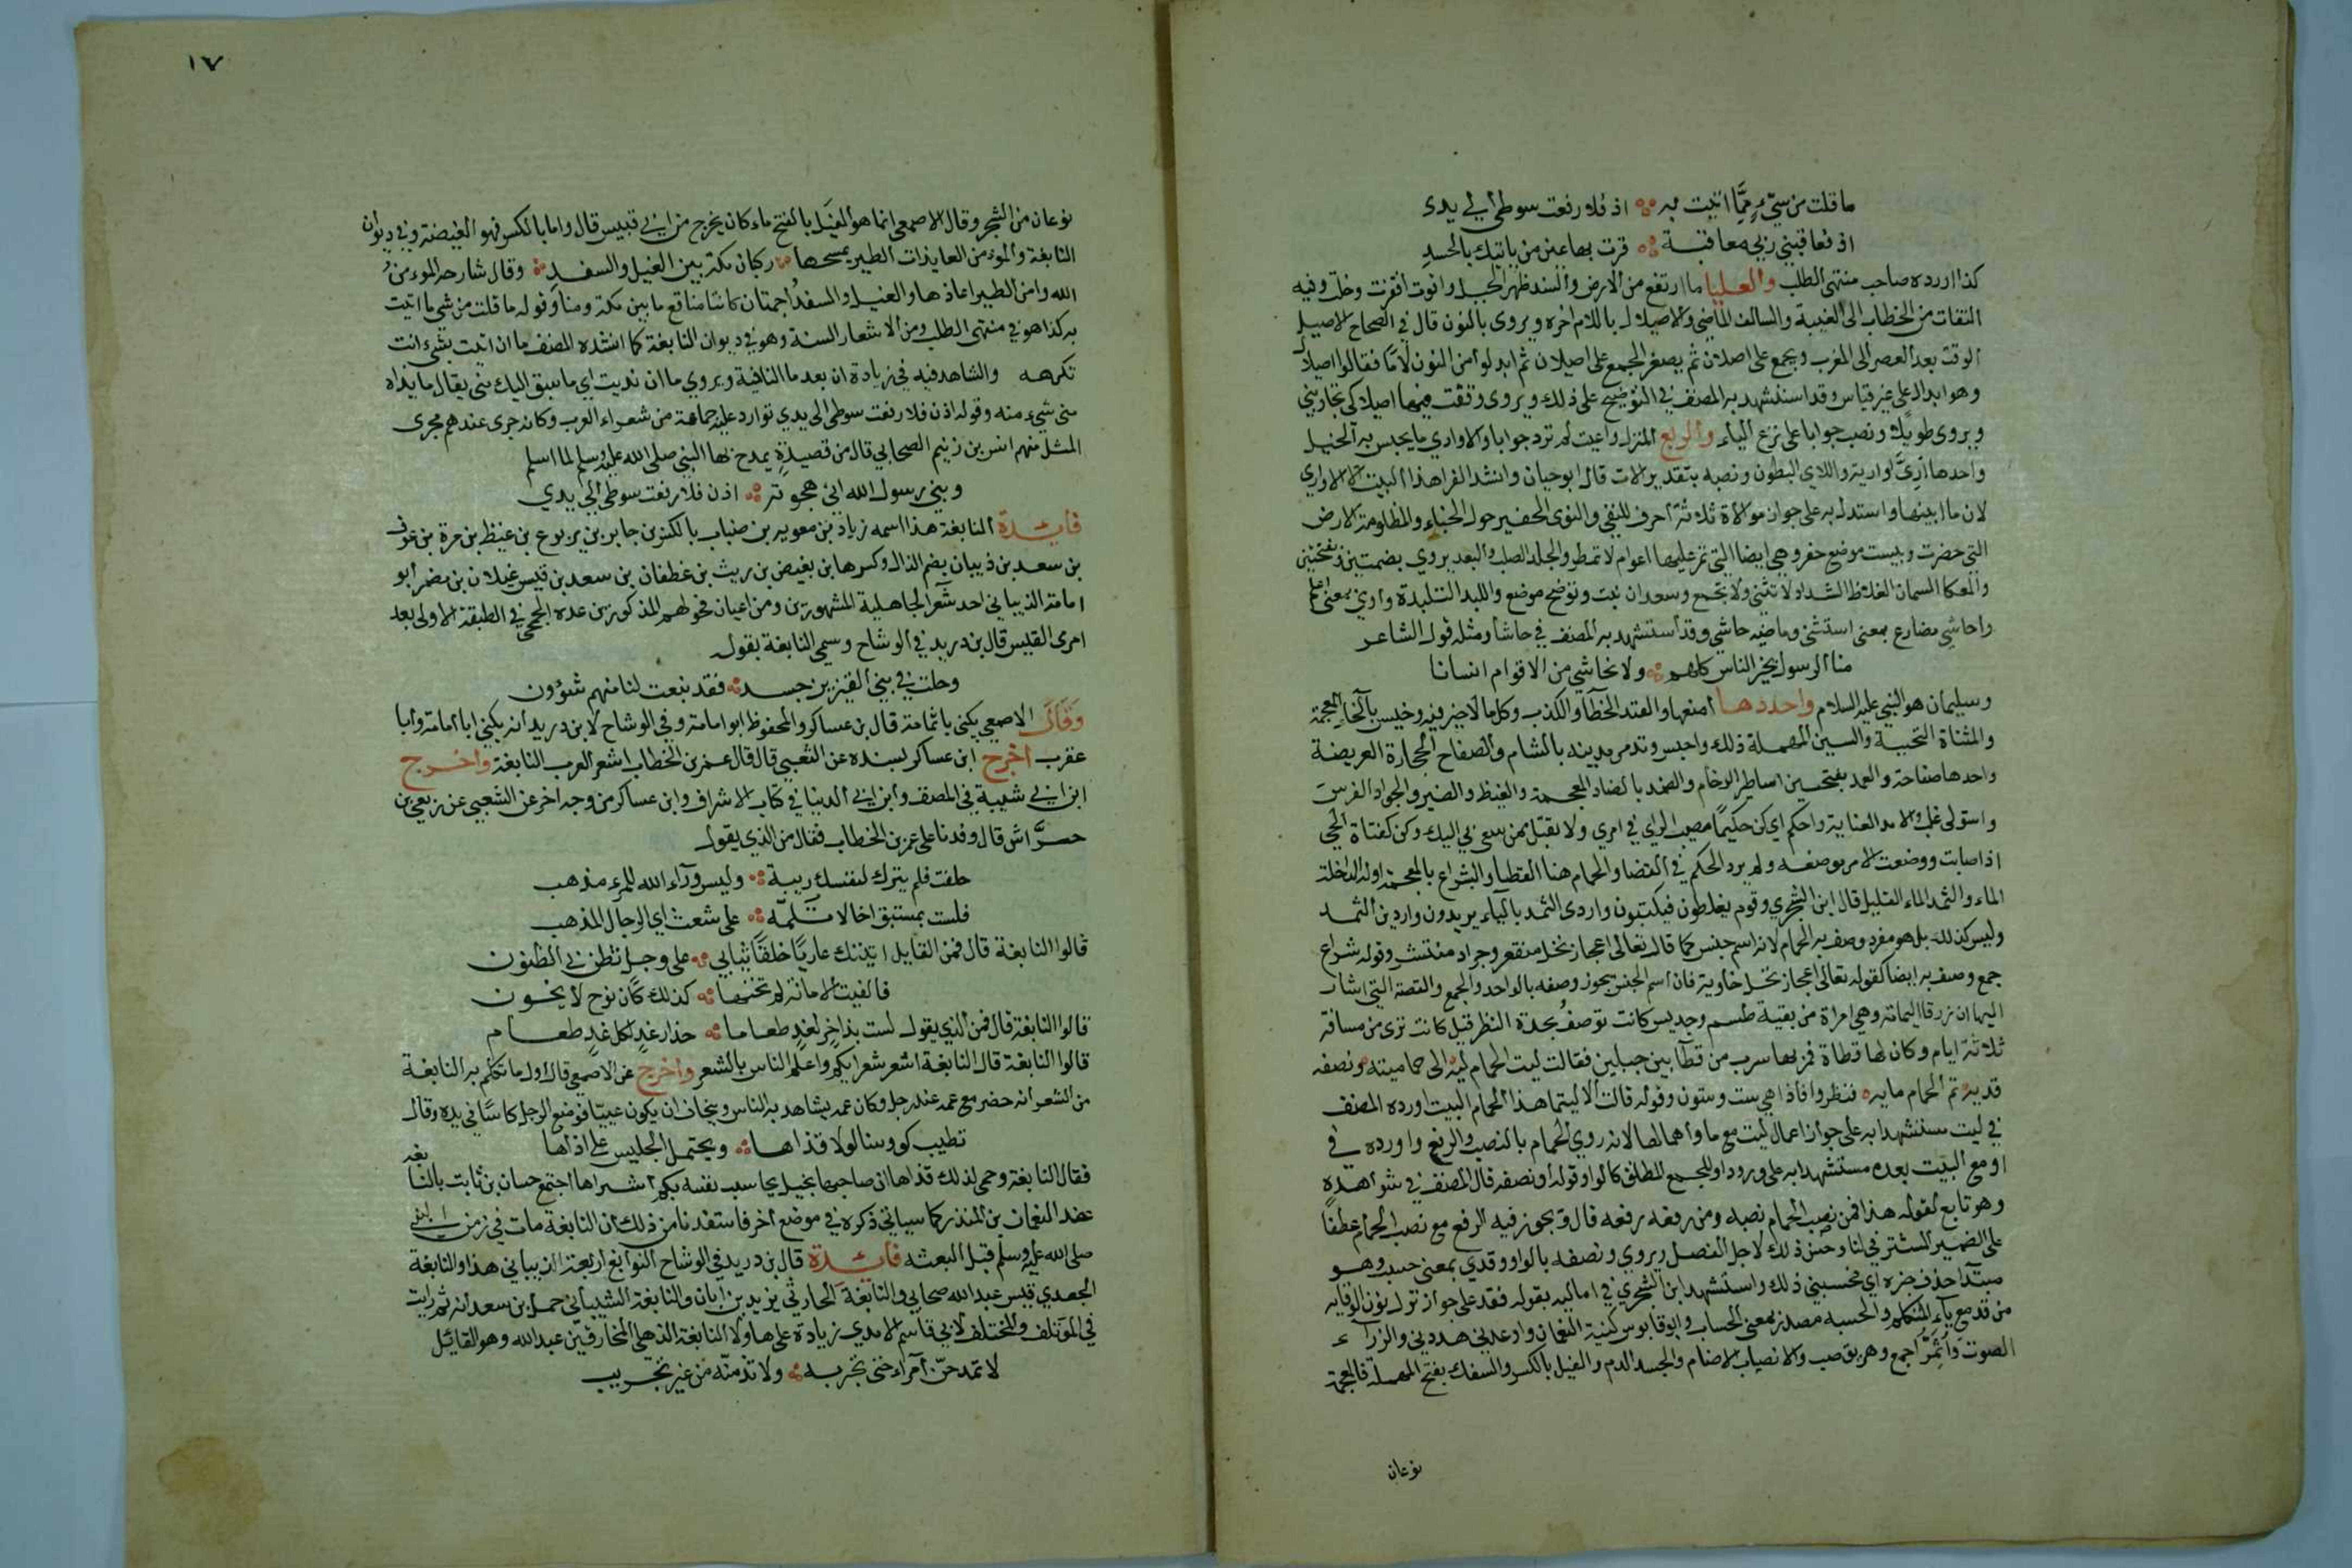 ما قلت من سيء مما اتيت به ؞ اذ فلا رفعت سوطي الي يدى
اذ فعاقبني ربي معاقبة ؞ قرت بها عين من ياتيك بالحسد
كذا اورده صاحب منتهى الطلب والعليا ما ارتفع من الارض والسند ظهر الجبل واقوت اقفرت وخلت وفيه
التفات من الخطاب الى الغيبة والسالف الماضي والاصيلال باللام اخره ويروى بالنون قال في الصحاح الاصيل
الوقت بعد العصر الى المغرب ويجمع على اصلان ثم يصغر الجمع على اصيلان ثم ابدلوا من النون لاما فقالوا اصيلال
وهو ابدال على غير قياس وقد استشهد به المصنف في التوضيح على ذلك ويروى وقفت فيها اصيلا كي تجاوبني
ويروى طويلا ونصب جوابا على نزع الباء والربع المنزل واعيت لم ترد جوابا والاواري ما يحبس به الخيل
واحدها آرى واريته واللاي البطون ونصبه بتقدير الات قال ابو حيان وانشد الفرا هذا البيت الا الاواري
لان ما ابينها واستدل به على جواز موالاة ثلاثة احرف للنفي والنوى الحفير حول الخباء والمظلومة الارض
التي حضرت وليست موضع حفر وهي ايضا التي تمر عليها اعوام لا تمطر والجلد الصلب والبعد يروي بضمتين وبفتحتين
والمعكا السمان الغلاظ الشداد لا تثنى ولا تجمع وسعدان نبت وتوضح موضع واللبد التلبدة وارى بمعنى اعلم
واحاشي مضارع بمعنى استثنى وماضيه حاشى وقد استشهد به المصنف في حاشا ومثله قول الشاعر
منا الرسول بخير الناس كلهم ؞ ولا نحاشي من الاقوام انسانا
وسليمان هو النبي عليه السلام واحددها امنعها والفند الخطأ والكذب وكل ما لا خير فيه وخيس بالخاء المعجمة
والمثناة التحتية والسين المهملة ذلك واحبس وتدمر مدينة بالشام والصفاح الحجارة العريضة
واحدها صفاحة والعمد بفتحتين اساطير الرخام والضمد بالضاد المعجمة والغيظ والضير والجواد الفرس
واستولى غلب والامد الغاية واحكم اي كن حكيما مصيب الراي في امري ولا تقبل ممن سعى بي اليك وكن كفتاة الحي
اذ اصابت ووضعت الامر موضعه ولم يرد الحكم في القضا والحمام هنا القطا والشراع بالمعجمة اوله الداخلة
الماء والثمد الماء القليل قال ابن الشجري وقوم يغلطون فيكتبون واردى الثمد بالياء يريدون واردين الثمد
وليس كذلك بل هو مفرد وصف به الحمام لانه اسم جنس كما قال تعالى اعجاز نخل منقعر وجراد منتشر وقوله شراع
جمع وصف به ايضا كقوله تعالى اعجاز نخل خاوية فان اسم الجنس يجوز وصفه بالواحد والجمع والقصة التي اشار
اليها ان زرقا اليمامة وهي امراة من بقية طسم وجديس كانت توصف بحدة النظر قيل كانت ترى من مسافة
ثلاثة ايام وكان لها قطاة فمر بها سرب من قطا بين جبلين فقالت ليت الحمام ليه الى حمامتيه ونصفه
قديه تم الحمام مايه فنظروا فاذا هي ست وستون وقوله قالت الا ليتما هذا الحمام البيت اورده المصنف
في ليت مستشهدا به على جواز اعمال ليت مع ما واهمالها لانه روي الحمام بالنصب والرفع واورده في
او مع البيت بعده مستشهدا به على ورود او للجمع المطلق كالواو وقوله او نصفه قال المصنف في شواهده
وهو تابع لقوله هذا فمن نصب الحمام نصبه ومن رفعه رفعه قال ويجوز فيه الرفع مع نصب الحمام عطفا
على الضمير المستتر في لنا وحسن ذلك لاجل الفصل ويروي ونصفه بالواو وقدي بمعنى حسب وهو
مبتدا حذف خبره اي فحسبي ذلك واستشهد ابن الشجري في اماليه بقوله فقد على جواز ترك نون الوقاية
من قد مع ياء المتكلم والحسبه مصدر بمعنى الحساب وابو قابوس كنية النعمان واوعدني هددني والزراء
الصوت واثمر اجمع وهريق صب والانصياب الاصنام والجسد الدم والغيل بالكسر والسفك بفتح المهملة فالمعجمة
نوعان
١٧
نوعان من الشجر وقال الاصمعي انما هو الغيل بالفتح ماء كان يخرج من ابي قبيس قال واما بالكسر فهو الغيضة وفي ديوان
النابغة والمؤمن العايذات الطير يمسحها ؞ ركبان مكة بين الغيل والسفد ؞ وقال شارحه المؤمن
الله وامن الطير اعاذها والغيل والسفد اجمتان كانتا مناقع ما بين مكة ومنا وقوله ما قلت من شي ما اتيت
به كذا هو في منتهى الطلب ومن الاشعار الستة وهو في ديوان النابغة كما انشده المصنف ما ان اتيت بشيء انت
تكرهه والشاهد فيه في زيادة ان بعد ما النافية ويروي ما ان نديت اي ما سبق اليك مني يقال ما نداه
منى شيء منه وقوله اذن فلا رفعت سوطى الى يدي توارد عليه جماعة من شعراء العرب وكانه جرى عندهم مجرى
المثل منهم انس بن زنيم الصحابي قال من قصيدة يمدح بها النبي صلى الله عليه وسلم لما اسلم
وبني رسول الله اني هجوته ؞ اذن فلا رفعت سوطي الي يدي
فايدة النابغة هذا اسمه زياد بن معويه بن ضباب بالكسر بن جابر بن يربوع بن غيظ بن مرة بن عوف
بن سعد بن ذبيان بضم الذال وكسرها بن بغيض بن ريث بن غطفان بن سعد بن قيس غيلان بن مضر ابو
امامة الذبياني احد شعرا الجاهلية المشهورين ومن اعيان فحولهم المذكورين عده الجمحي في الطبقة الاولى بعد
امرى القيس قال بن دريد في الوشاح وسمي النابغة بقوله
وحلت في بني القين بن جسد ؞ فقد نبعت لنا منهم شؤون
وقال الاصمعي يكني باثمامة قال بن عساكر والمحفوظ ابو امامة وفي الوشاح لابن دريد انه يكني ابا امامة وابا
عقرب اخرج ابن عساكر بسنده عن الشعبي قال قال عمر بن الخطاب اشعر العرب النابغة واخرج
ابن ابي شيبة في المصنف وابن ابي الدنيا في كتاب الاشراف وابن عساكر من وجه اخر عن الشعبي عن ربعي بن
حراش قال وفدنا على عمر بن الخطاب فقال من الذي يقول
حلفت فلم يترك لنفسك ريبة ؞ وليس وراء الله للمرء مذهب
فلست بمستبق اخا لا تلمه ؞ على شعث اي الرجال المذهب
قالوا النابغة قال فمن القايل اتيتك عاريا خلقا ثيابي ؞ على وجل تظن بي الظنون
فالفيت الامانة لم تخنها ؞ كذلك كان نوح لا يخون
قالوا النابغة قال فمن الذي يقول لست بذاخر لغد طعاما ؞ حذار غد لكل غد طعام
قالوا النابغة قال النابغة اشعر شعرايكم واعلم الناس بالشعر واخرج عن الاصمعي قال اول ما تكلم به النابغة
من الشعر انه حضر مع عمه عند رجل وكان عمه يشاهد به الناس ويخاف ان يكون عييا فوضع الرجل كاسا في يده وقال
تطيب كووسنا لولا قذاها ؞ ويحتمل الجليس على اذاها
فقال النابغة وحمي لذلك قذاها ان صاحبها بخيل يحاسب نفسه بكم اشتراها اجتمع حسان بن ثابت بالنابغه
عند النعمان بن المنذر كما سياتي ذكره في موضع اخر فاستفدنا من ذلك ان النابغة مات في زمن النبي
صلى الله عليه وسلم قبل البعثه فايدة قال بن دريد في الوشاح النوابغ اربعة الذبياني هذا والنابغة
الجعدي قيس عبدالله صحابي والنابغة الحارثي يزيد بن ابان والنابغة الشيباني حمل بن سعدانه ثم رايت
في المؤتلف والمختلف لابي قاسم الامدي زيادة على هاولا النابغة الذهلي المخارق بن عبدالله وهو القائل
لا تمدحن امراء حتى تجربه ؞ ولا تذمنه من غير تجريب